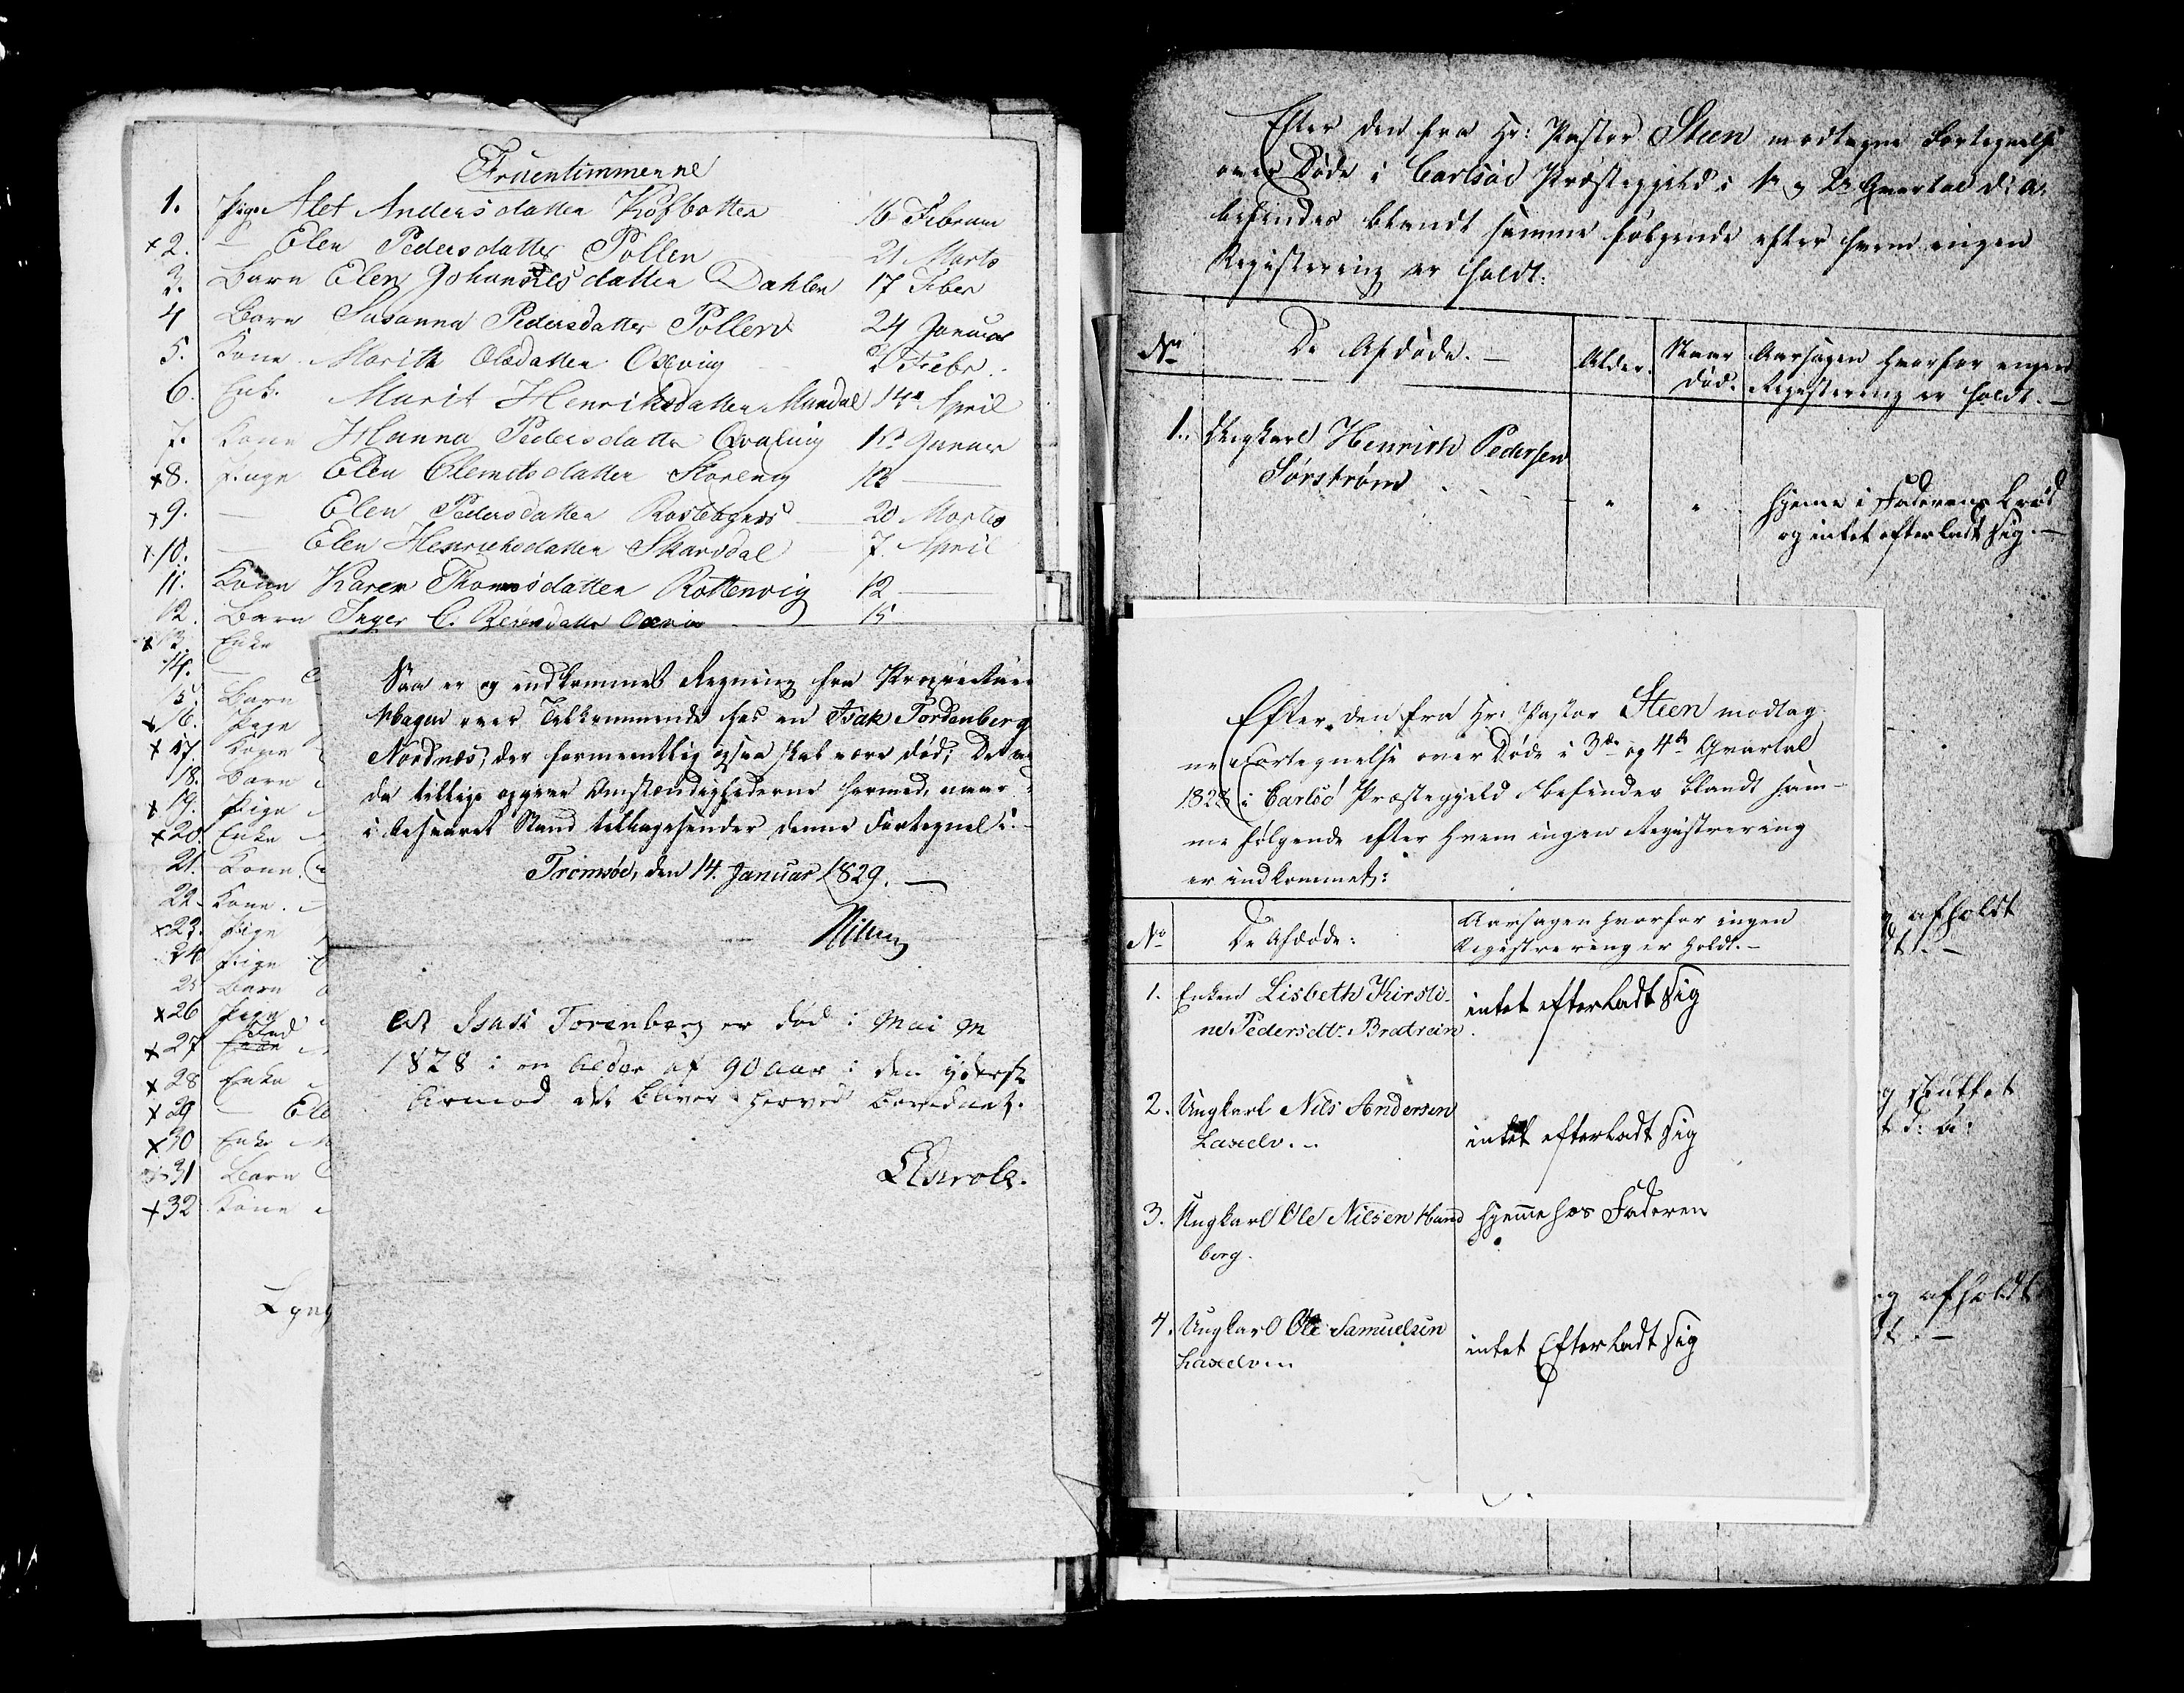 Fruentimmerne
1. Pige Alet Andersdatter Kofbotten 16 Februar
x2. — Elen Pedersdatter Pollen 21 Marts
3. Barn Elen Johannesdatter Dahlen 17 Feber
4 Barn Susanna Pedersdatter Pollen 24 Januar
5. Kone Marith Olsdatter Oxevig Febr.
6. Enk. Marit Henriksdatter Mandal 14 April
7. Kone Hanna Pedersdatter Qvalvig Januar
x8. Pige Elen Clemetsdatter Storeng 13 —
x9. — Elen Pedersdatter 20 Marts
x10. — Elen Henrichsdatter Skarvdal 7. April
11. Kone Karen Thomsdatter Rottenvig 12 —
12. Barn Inger C. 15
x13. Enke
14. —
5. Barn
x16. Pige
x17. Kone
18. Barn
x19. Pige
x20. Enke
21. Kone.
22. Kone.
x23. Pige
24. Pige
25 Barn
x26 Pige
x27
x28 Enke
x29 — Ele
x30 Enke
31 Barn
x32 Kone
Lyng
Saa er og indkommet Regning fra Proprietair
over Tilkommende hos en Isak Tordenberg
Nordnæs, der formentlig ogsaa skal være død; De
da tillige opgive Omstændighederne hermed, naar
i besvaret Stand tilbagesender denne Fortegnelse.
Tromsøe, den 14. Januar 1829. —
At Isak Torenberg er død i Mai M
1828 i en Alder af 90 aar i den yderste
Armod det bliver herved bevidnet.
Efter den fra Hr: Pastor Steen modtagne Fortegnelse
over Døde i Carlsøe Præstegjeld i 1te og 2de Qvartal d: A:
befindes blandt samme følgende efter hvem ingen
Registrering er holdt:
No De Afdøde. — Alder. Naar død. Aarsagen hvorfor ingen Registrering er holdt. —
1. Ungkarl Henrich Pedersen
Sørstrøm " " hjeme i Faderens brød
og intet efterladt sig. —
Efter den fra Hr: Pastor Steen modtag-
ne Fortegnelse over Døde i 3de og 4de Qvartal
1828 i Carlsø Præstegjeld befindes blandt sam-
me følgende efter hvem ingen Registrering
er indkommet:
No De Afdøde: Aarsagen hvorfor ingen
Registrering er holdt. —
1. Enken Lisbeth Kirsti-
ne Pedersdtr. Bratrein. intet efterladt sig
2. Ungkarl Nils Andersen
Laxelv. — intet efterladt sig
3. Ungkarl Ole Nilsen Hand
berg. hjemme hos Faderen
4. Ungkarl Ole Samuelsen
Laxelv. intet Efterladt sig
afholdt
afholdt